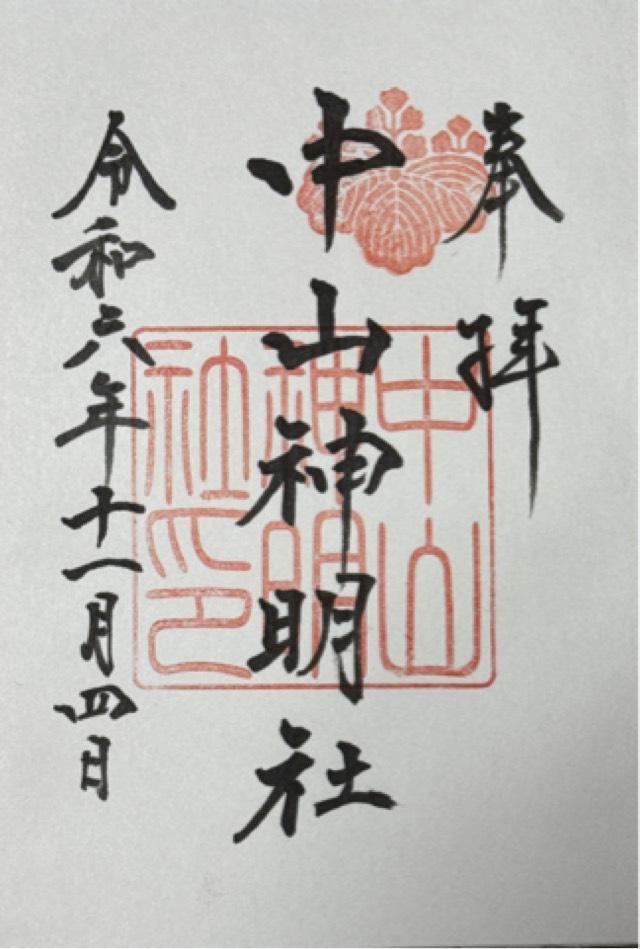 奉拝
中山神明社
令和六年十一月四日
中山
神明
社印